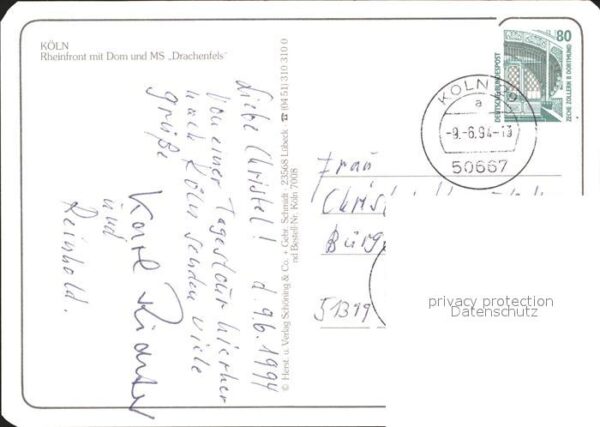 KÖLN
Rheinfront mit Dom und MS „Drachenfels“
Liebe Christel! d. 9.6.1994
Von einer Tagestour hierher
nach Köln senden viele
Grüße
Karl
und
Reinhold.
© Herst. u. Verlag Schöning & Co. + Gebr. Schmidt · 23568 Lübeck · ☎ (04 51) 310 310 0
nd Bestell-Nr. Köln 7008
DEUTSCHE BUNDESPOST
80
ZECHE ZOLLERN II DORTMUND
KÖLN
a
-9.-6.94-13
50667
Frau
51399
privacy protection
Datenschutz